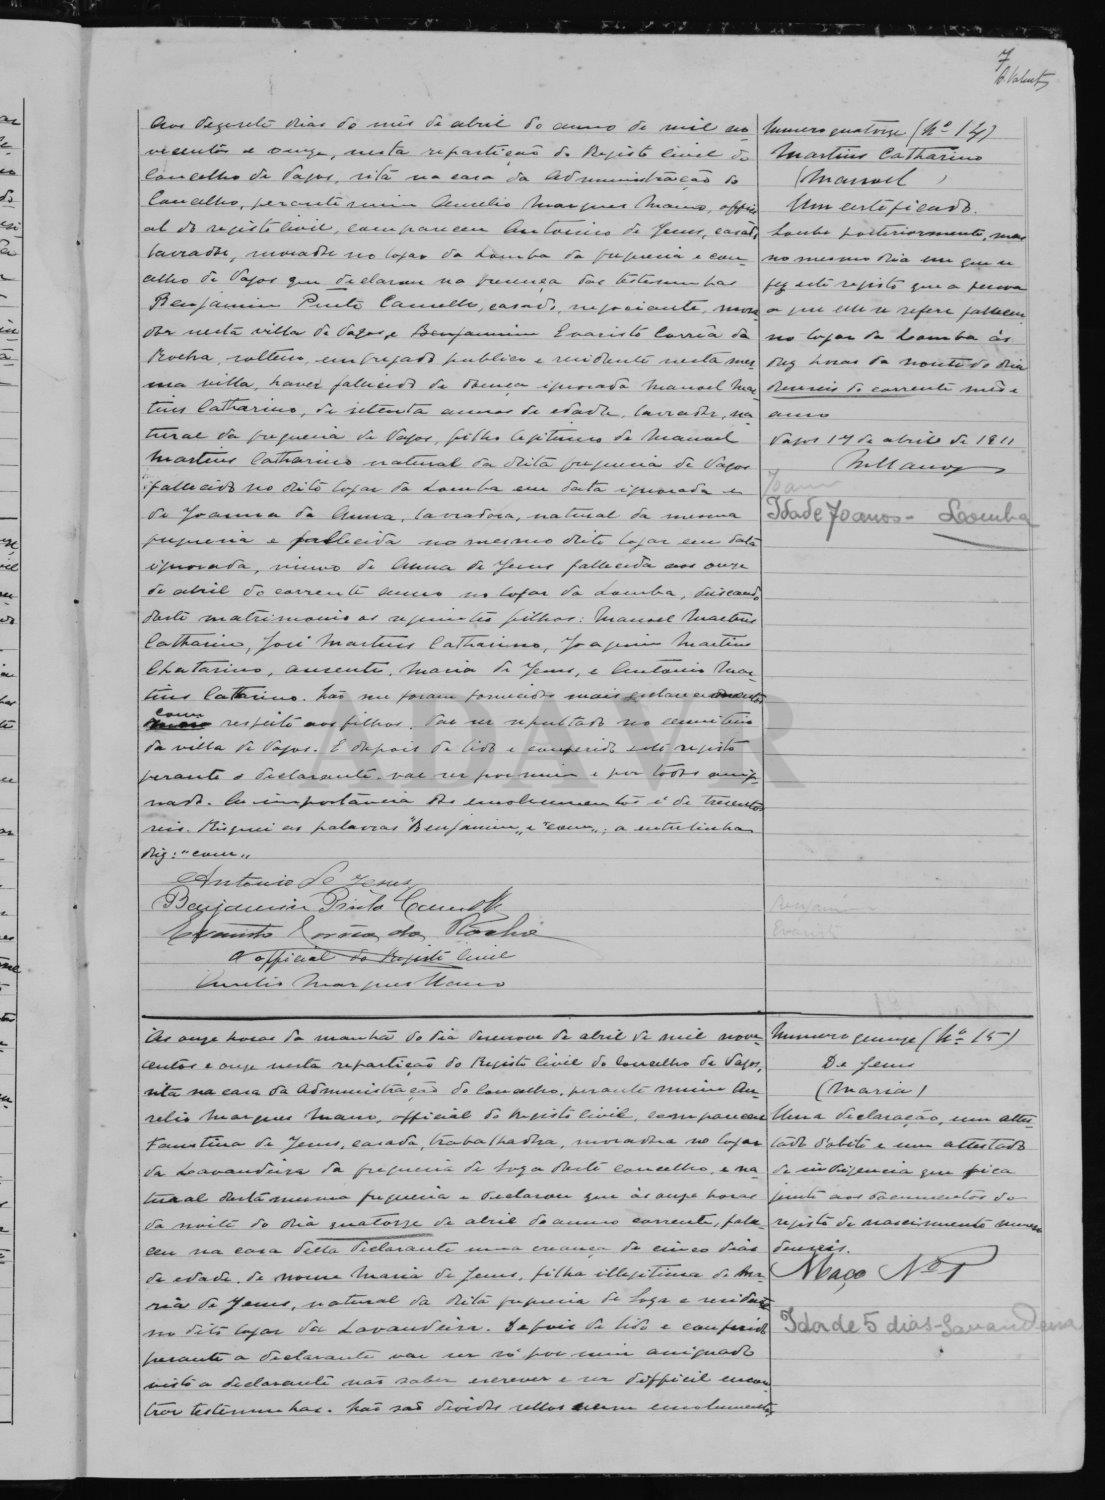 7
Aos dezesete dias do mês de abril do anno de mil no-
vecentos e onze, nesta repartição do Registo Civil do
Concelho de Vagos, sita na casa da Administração do
Concelho, perante mim Aurelio Marques Mano, offici-
al do registo civil, compareceu Antonino de Jesus, casado,
lavrador, morador no logar da Lomba da freguesia e con-
celho de Vagos que declarou na presença das testemunhas
Benjamim Pinto Camello, casado, negociante, mora-
dor nesta villa de Vagos, e Benjamim Evaristo Corrêa da
Rocha, solteiro, empregado publico e residente nesta mes-
ma villa, haver fallecido de doença ignorada Manoel Mar-
tins Catharino, de setenta annos de edade, lavrador, na-
tural da freguesia de Vagos, filho legitimo de Manoel
Martins Catharino natural da dita freguesia de Vagos
fallecido no dito logar da Lomba em data ignorada e
de Joanna da Anna, lavradora, natural da mesma
freguesia e fallecida no mesmo dito logar em data
ignorada, viuvo de Anna de Jesus fallecida aos onze
de abril do corrente anno no logar da Lomba, deixando
deste matrimonio os seguintes filhos: Manoel Martins
Catharino, José Martins Catharino, Joaquim Martins
Chatarino, ausente, Maria de Jesus, e Antonio Mar-
tins Catarino. Não me foram fornecidos mais esclarecimentos
com respeito aos filhos. Vae ser sepultado no cemiterio
da villa de Vagos. E depois de lido e conferido este registo
perante o declarante vae ser por mim e por todos assig-
nado. A importancia dos emolumentos é de trezentos
reis. Risquei as palavras "Benjamim" e "com"; a entrelinha
diz: "com"
Antonio de Jesus
Benjamim Pinto Camello
Evaristo Corrêa da Rocha
O official do Registo Civil
Aurelio Marques Mano
Numero quatorze (Nº 14)
Martins Catharino
(Manoel)
Um certificado.
Soube posteriormente, mas
no mesmo dia em que se
fez este registo que a pessoa
a que elle se refere falleceu
no logar da Lomba ás
dez horas da noute do dia
dezeseis do corrente mês e
anno
Vagos 17 de abril de 1911
Idade 70 annos - Lomba
ADAVR
Ás onze horas da manhã do dia dezenove de abril de mil nove-
centos e onze nesta repartição do Registo Civil do Concelho de Vagos,
sita na casa da Administração do Concelho, perante mim Au-
relio Marques Mano, official do Registo Civil, compareceu
Faustina de Jesus, casada, trabalhadra, moradra no logar
da Lavandeira da freguesia de Soza deste concelho, e na-
tural desta mesma freguesia e declarou que ás onze horas
da noite do dia quatorze de abril do anno corrente, falle-
ceu na casa della declarante uma creança de cinco dias
de edade, de nome Maria de Jesus, filha illegitima de Ma-
ria de Jesus, natural da dita freguesia de Soza e residente
no dito logar da Lavandeira. Depois de lido e conferido
perante a declarante vae ser só por mim assignado
visto a declarante não saber escrever e ser difficil encon-
trar testemunhas. Não são devidos sellos nem emolumentos,
Numero quinze (Nº 15)
De Jesus
(Maria)
Uma declaração, um attes-
tado d'obito e um attestado
de indigencia que fica
junto aos documentos do
registo de nascimento numero
dezeseis.
Maço Nº 1
Idade 5 dias - Lavandeira